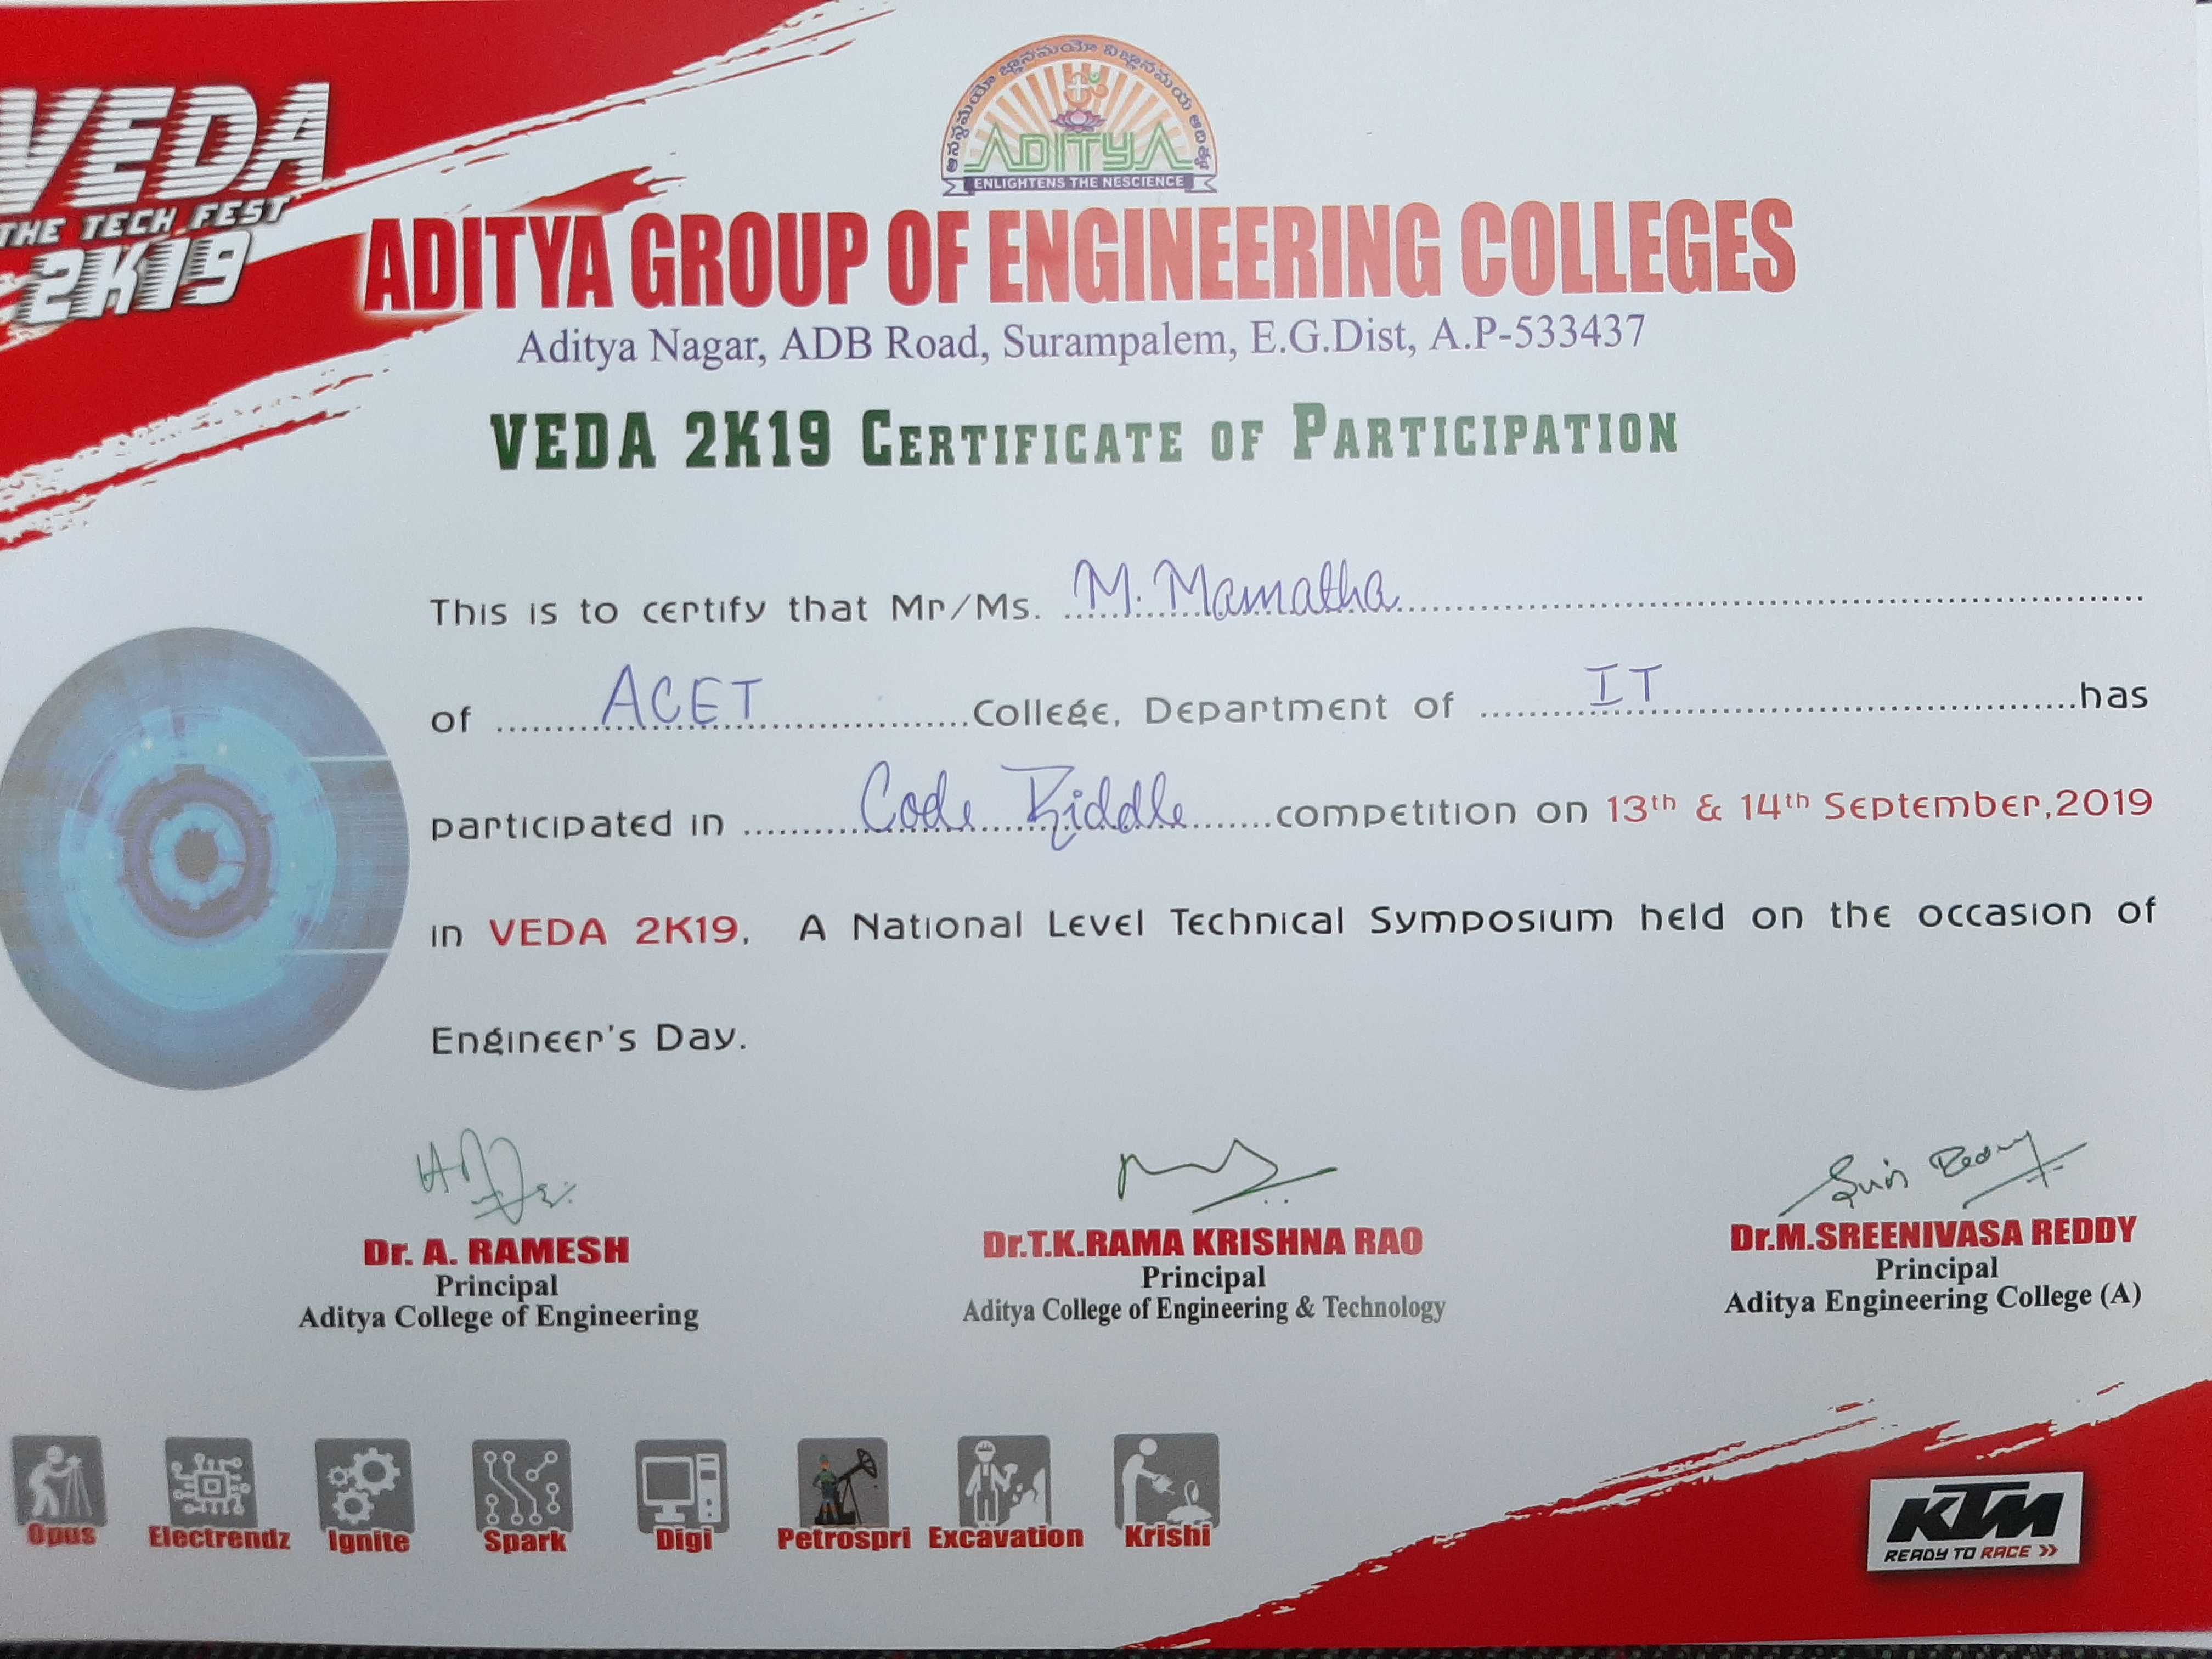 VEDA
THE TECH FEST
2K19
ఆనన్దమయో జ్ఞానమయో విజ్ఞానమయ ఆదిత్య
ADITYA
ENLIGHTENS THE NESCIENCE
ADITYA GROUP OF ENGINEERING COLLEGES
Aditya Nagar, ADB Road, Surampalem, E.G.Dist, A.P-533437
VEDA 2K19 CERTIFICATE OF PARTICIPATION
This is to certify that Mr/Ms. M. Mamatha
of ACET College, Department of IT has
participated in Code Riddle competition on 13th & 14th September,2019
in VEDA 2K19, A National Level Technical Symposium held on the occasion of
Engineer's Day.
Dr. A. RAMESH
Principal
Aditya College of Engineering
Dr.T.K.RAMA KRISHNA RAO
Principal
Aditya College of Engineering & Technology
Dr.M.SREENIVASA REDDY
Principal
Aditya Engineering College (A)
Opus Electrendz Ignite Spark Digi Petrospri Excavation Krishi
KTM
READY TO RACE »